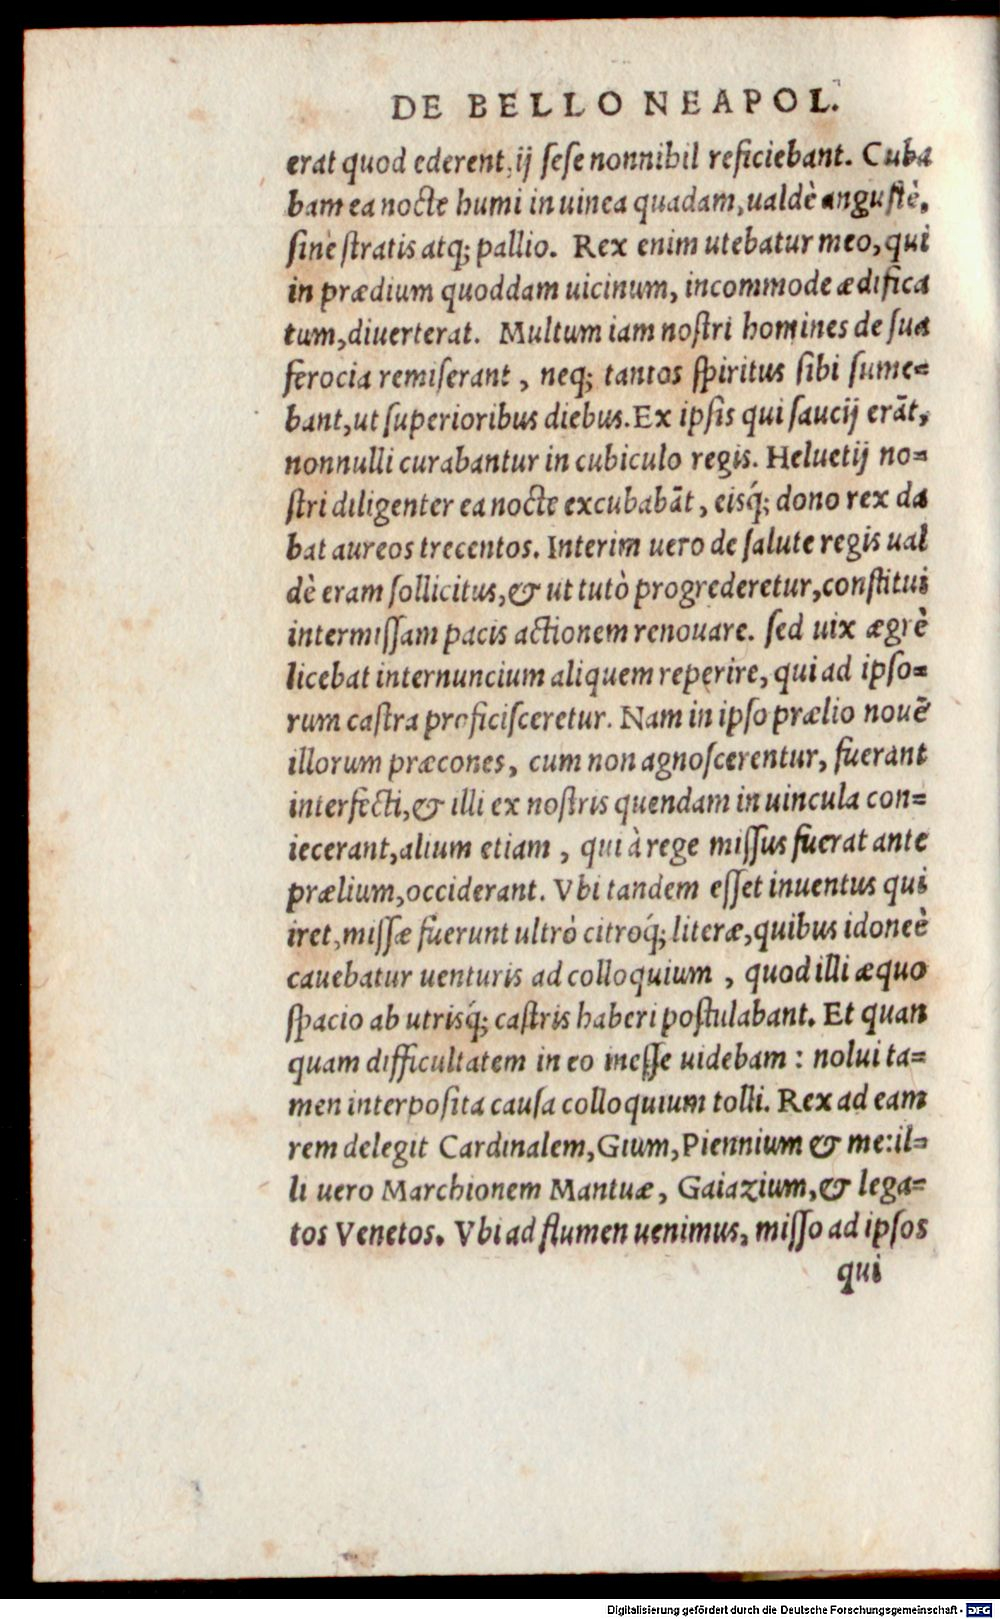 DE BELLO NEAPOL.
erat quod ederent, ij sese nonnihil reficiebant. Cuba
bam ea nocte humi in uinea quadam, ualdè angustè,
sine stratis atq; pallio. Rex enim utebatur meo, qui
in prædium quoddam uicinum, incommode ædifica
tum, diuerterat. Multum iam nostri homines de sua
ferocia remiserant, neq; tantos spiritus sibi sume=
bant, ut superioribus diebus. Ex ipsis qui saucij erāt,
nonnulli curabantur in cubiculo regis. Heluetij no=
stri diligenter ea nocte excubabāt, eisq́; dono rex da
bat aureos trecentos. Interim uero de salute regis ual
dè eram sollicitus, & ut tutò progrederetur, constitui
intermissam pacis actionem renouare. sed uix ægrè
licebat internuncium aliquem reperire, qui ad ipso=
rum castra proficisceretur. Nam in ipso prælio nouē
illorum præcones, cum non agnoscerentur, fuerant
interfecti, & illi ex nostris quendam in uincula con=
iecerant, alium etiam, qui à rege missus fuerat ante
prælium, occiderant. Vbi tandem esset inuentus qui
iret, missæ fuerunt ultrò citroq́; literæ, quibus idoneè
cauebatur uenturis ad colloquium, quod illi æquo
spacio ab utrisq́; castris haberi postulabant. Et quan
quam difficultatem in eo inesse uidebam: nolui ta=
men interposita causa colloquium tolli. Rex ad eam
rem delegit Cardinalem, Gium, Piennium & me: il=
li uero Marchionem Mantuæ, Gaiazium, & lega=
tos Venetos. Vbi ad flumen uenimus, misso ad ipsos
qui
Digitalisierung gefördert durch die Deutsche Forschungsgemeinschaft - DFG